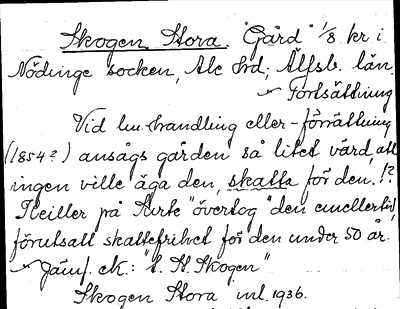 Skogen Stora. "Gård" 1/8 kr i
Nödinge socken, Ale hrd; Älfsb. län.
Fortsättning
Vid lm-handling eller -förrättning
(1854?) ansågs gården så litet värd, att
ingen ville äga den, skatta för den!?
Heiller på Kirke "övertog" den emellertid,
förutsatt skattefrihet för den under 50 år.
Jämf. ek.: "L. St. Skogen"
Skogen Stora ml. 1936.